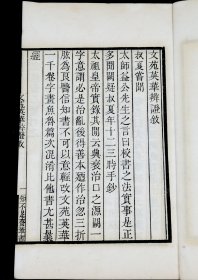 文苑英華辨證敘
叔夏嘗聞
太師益公先生之言曰校書之法實事是正
多聞闕疑叔夏年十二三時手鈔
太祖皇帝實錄其間云興衰治口之源闕一
字意謂必是治亂後得善本廼作治忽三折
肱為良醫信知書不可以意輕改文苑英華
一千卷字畫魚魯篇次混淆比他書尤甚曩
知不足齋叢書